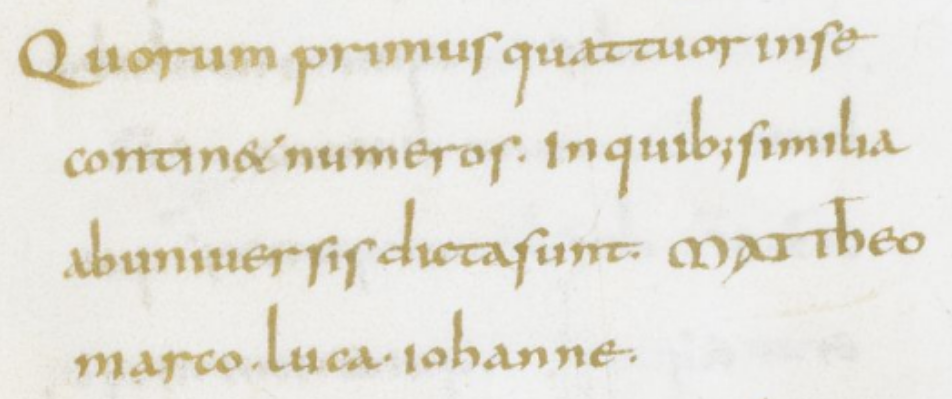 Quorum primus quattuor inse
contin& numeros. In quib; similia
abuniuersis dicta sunt. Mattheo
marco. luca. iohanne.